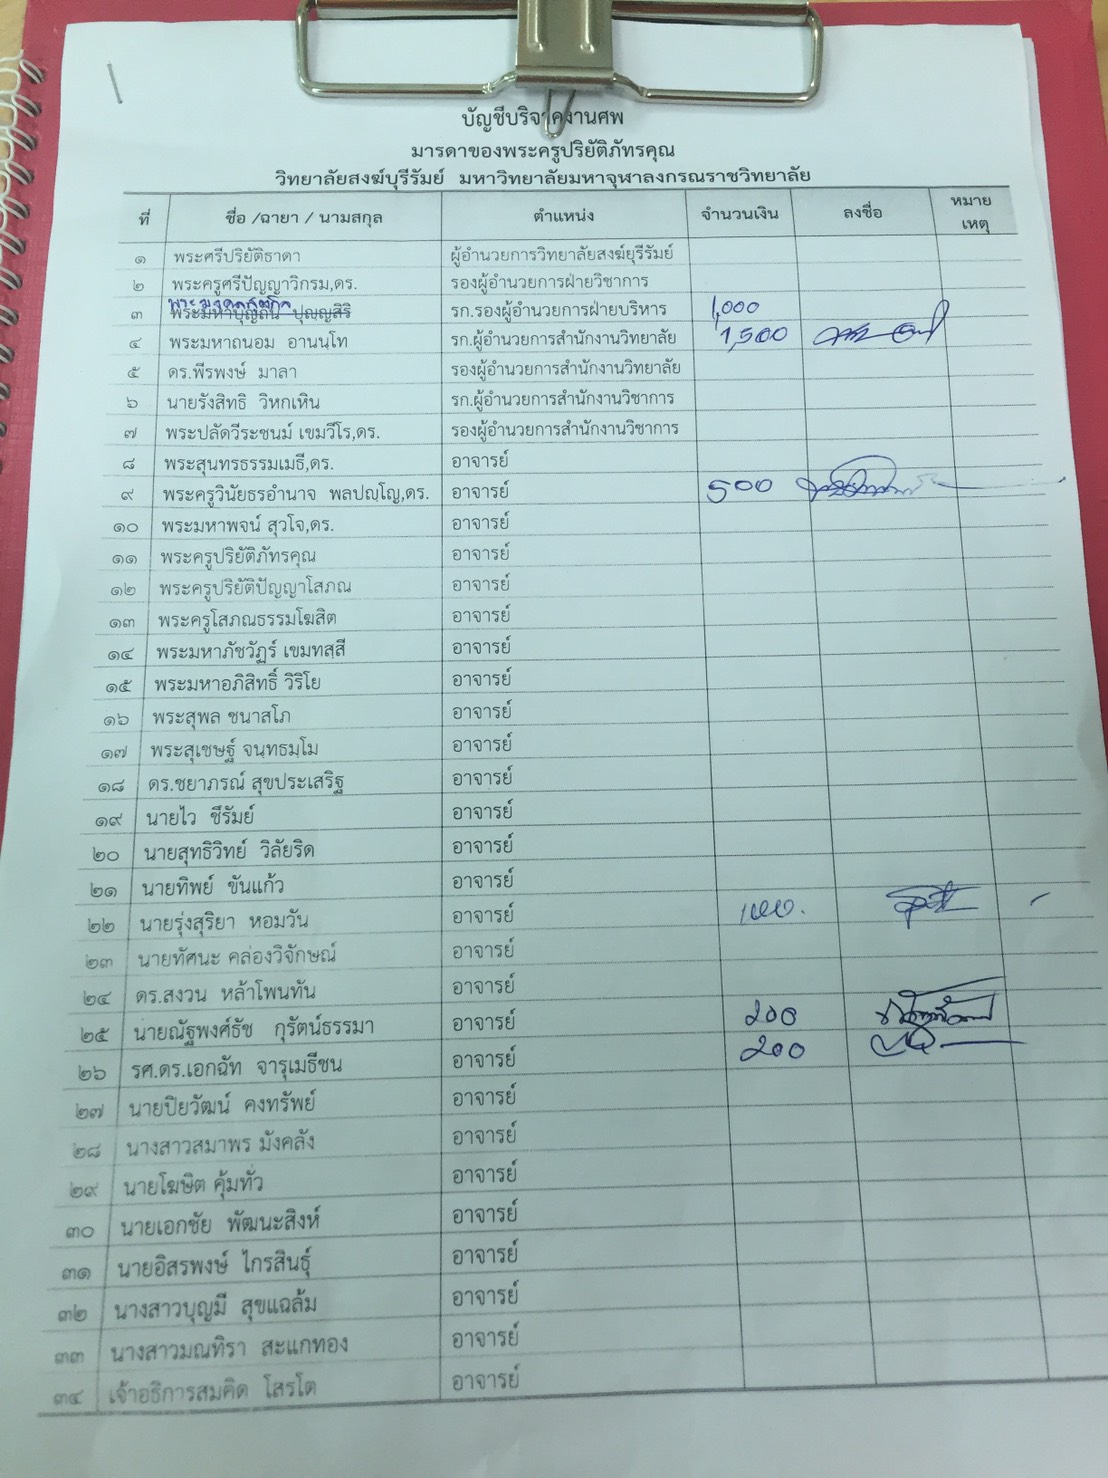 บัญชีบริจาคงานศพ
มารดาของพระครูปริยัติภัทรคุณ
วิทยาลัยสงฆ์บุรีรัมย์ มหาวิทยาลัยมหาจุฬาลงกรณราชวิทยาลัย
ที่ ชื่อ /ฉายา / นามสกุล ตำแหน่ง จำนวนเงิน ลงชื่อ หมายเหตุ
๑ พระศรีปริยัติธาดา ผู้อำนวยการวิทยาลัยสงฆ์บุรีรัมย์
๒ พระครูศรีปัญญาวิกรม,ดร. รองผู้อำนวยการฝ่ายวิชาการ
๓ ปุญฺญสิริ รก.รองผู้อำนวยการฝ่ายบริหาร 1,000
๔ พระมหาถนอม อานนฺโท รก.ผู้อำนวยการสำนักงานวิทยาลัย 1,500
๕ ดร.พีรพงษ์ มาลา รองผู้อำนวยการสำนักงานวิทยาลัย
๖ นายรังสิทธิ วิหกเหิน รก.ผู้อำนวยการสำนักงานวิชาการ
๗ พระปลัดวีระชนม์ เขมวีโร,ดร. รองผู้อำนวยการสำนักงานวิชาการ
๘ พระสุนทรธรรมเมธี,ดร. อาจารย์
๙ พระครูวินัยธรอำนาจ พลปญฺโญ,ดร. อาจารย์ 500
๑๐ พระมหาพจน์ สุวโจ,ดร. อาจารย์
๑๑ พระครูปริยัติภัทรคุณ อาจารย์
๑๒ พระครูปริยัติปัญญาโสภณ อาจารย์
๑๓ พระครูโสภณธรรมโฆสิต อาจารย์
๑๔ พระมหาภัชวัฏร์ เขมทสฺสี อาจารย์
๑๕ พระมหาอภิสิทธิ์ วิริโย อาจารย์
๑๖ พระสุพล ชนาสโภ อาจารย์
๑๗ พระสุเชษฐ์ จนฺทธมฺโม อาจารย์
๑๘ ดร.ชยาภรณ์ สุขประเสริฐ อาจารย์
๑๙ นายไว ชึรัมย์ อาจารย์
๒๐ นายสุทธิวิทย์ วิลัยริด อาจารย์
๒๑ นายทิพย์ ขันแก้ว อาจารย์
๒๒ นายรุ่งสุริยา หอมวัน อาจารย์ 1,000.
๒๓ นายทัศนะ คล่องวิจักษณ์ อาจารย์
๒๔ ดร.สงวน หล้าโพนทัน อาจารย์
๒๕ นายณัฐพงศ์ธัช กุรัตน์ธรรมา อาจารย์ 200
๒๖ รศ.ดร.เอกฉัท จารุเมธีชน อาจารย์ 200
๒๗ นายปิยวัฒน์ คงทรัพย์ อาจารย์
๒๘ นางสาวสมาพร มังคลัง อาจารย์
๒๙ นายโฆษิต คุ้มทั่ว อาจารย์
๓๐ นายเอกชัย พัฒนะสิงห์ อาจารย์
๓๑ นายอิสรพงษ์ ไกรสินธุ์ อาจารย์
๓๒ นางสาวบุญมี สุขแฉล้ม อาจารย์
๓๓ นางสาวมณทิรา สะแกทอง อาจารย์
๓๔ เจ้าอธิการสมคิด โสรโต อาจารย์